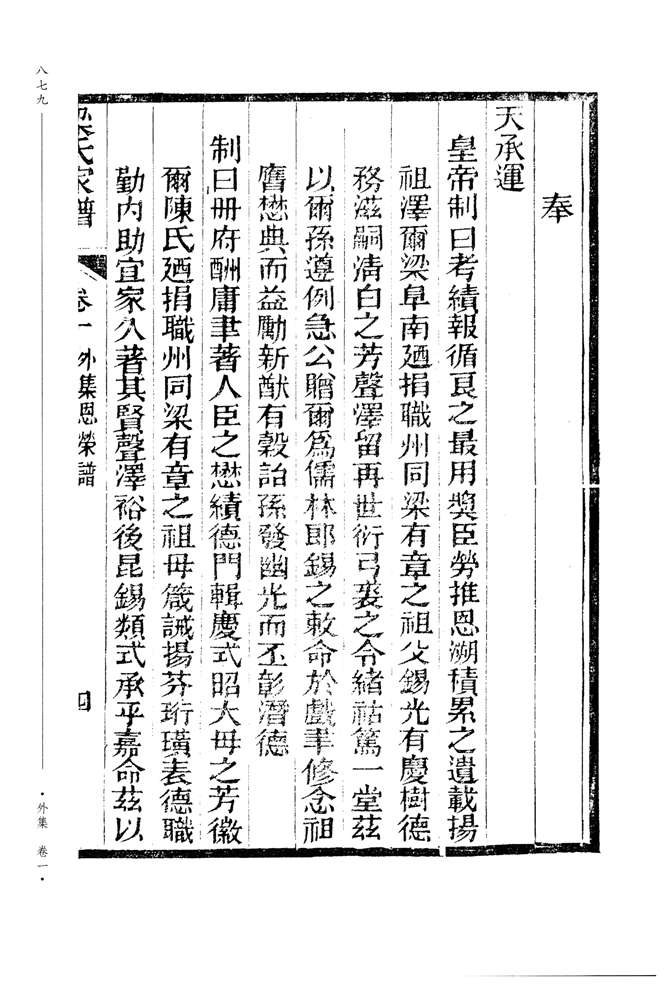 奉
天承運
皇帝制曰考績報循良之最用奬臣勞推恩溯積累之遺載揚
祖澤爾梁阜南廼捐職州同梁有章之祖父錫光有慶樹德
務滋嗣清白之芳聲澤留再世衍弓裘之令緒祜篤一堂茲
以爾孫遵例急公贈爾爲儒林郎錫之敕命於戲聿修念祖
膺懋典而益勵新猷有穀詒孫發幽光而丕彰潛德
制曰册府酬庸聿著人臣之懋績德門輯慶式昭大母之芳徽
爾陳氏廼捐職州同梁有章之祖母箴誡揚芬珩璜表德職
勤內助宜家久著其賢聲澤裕後昆錫類式承乎嘉命茲以
梁氏家譜 卷一 外集恩榮譜 四
八七九
•外集 卷一•